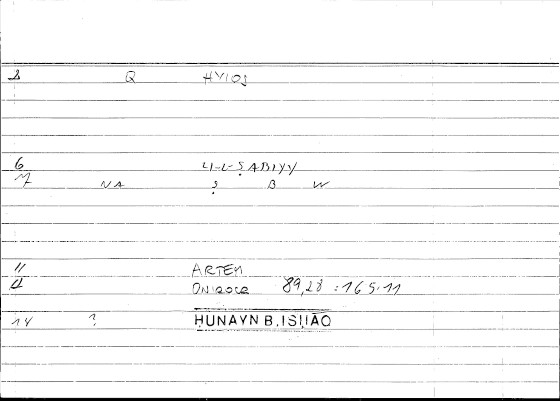 2 Q HYIOS
6 LI-L-ṢABIYY
7 NA Ṣ B W
11 ARTEM
12 ONIROCR 89,28 = 165.11
14 ? HUNAYN B. ISḤĀQ